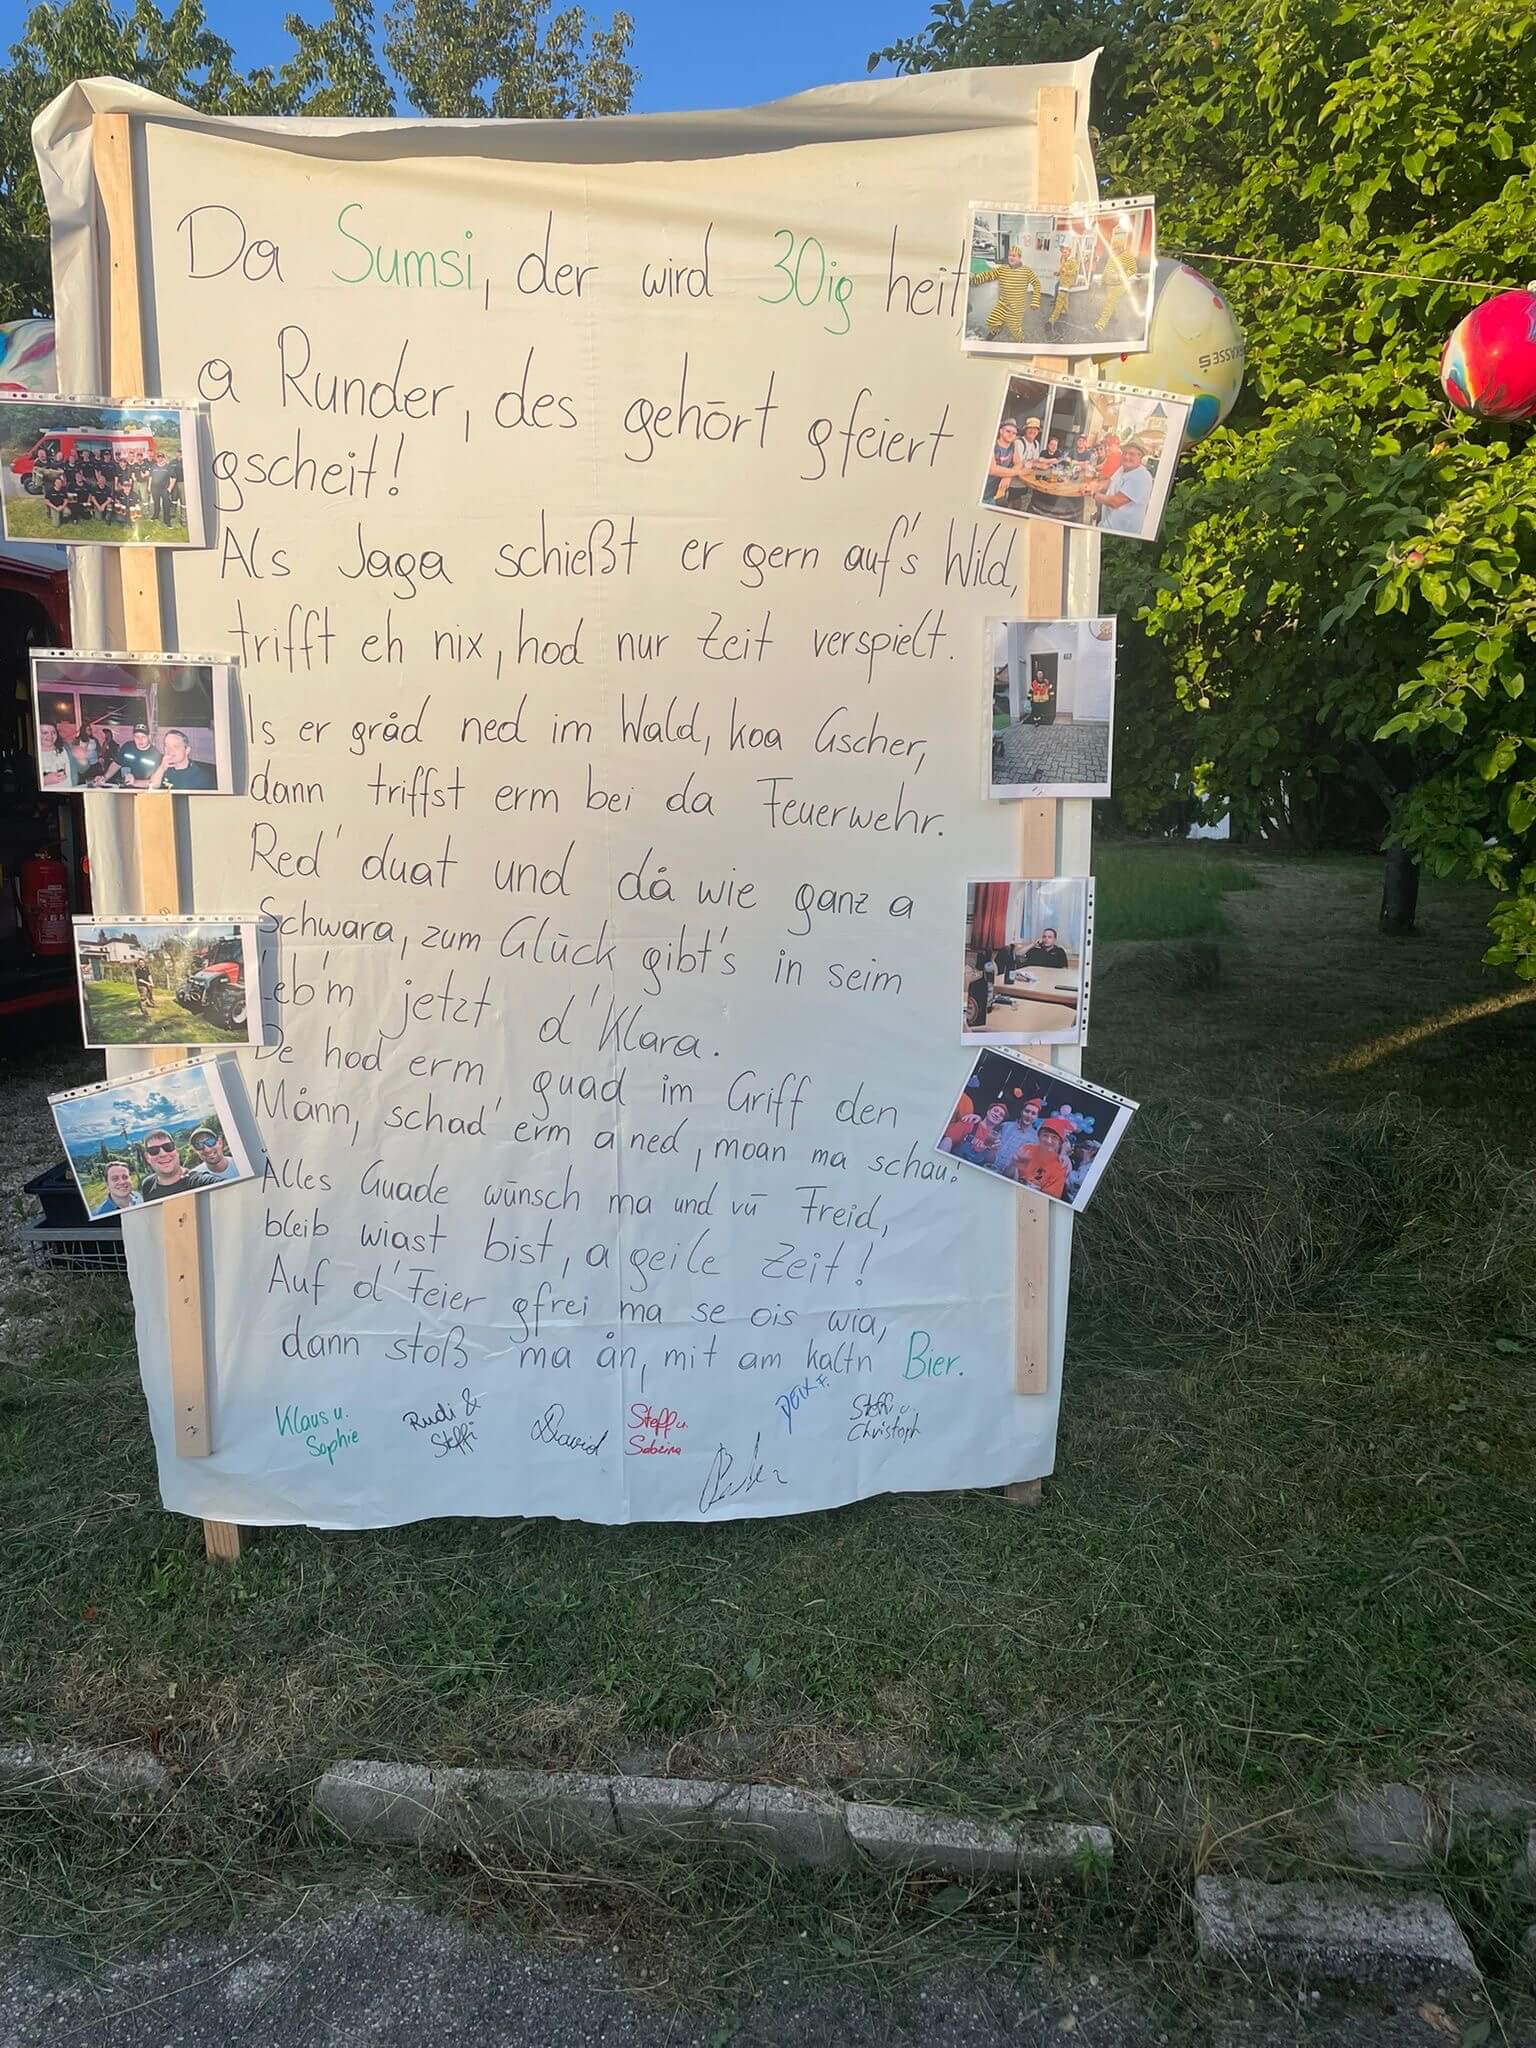 Da Sumsi, der wird 30ig heit
a Runder, des gehört gfeiert
gscheit!
Als Jaga schießt er gern auf's Wild,
trifft eh nix, hod nur Zeit verspielt.
Is er gråd ned im Wald, koa Gscher,
dann triffst erm bei da Feuerwehr.
Red' duat und då wie ganz a
Schwara, zum Glück gibt's in seim
Leb'm jetzt d'Klara.
De hod erm guad im Griff den
Månn, schad' erm a ned, moan ma schau!
Alles Guade wünsch ma und vü Freid,
bleib wiast bist, a geile Zeit!
Auf d'Feier gfrei ma se ois wia,
dann stoß ma ån, mit am kaltn Bier.
Klaus u. Sophie
Rudi & Steffi
David
Steff u. Sabrina
Steffi u. Christoph